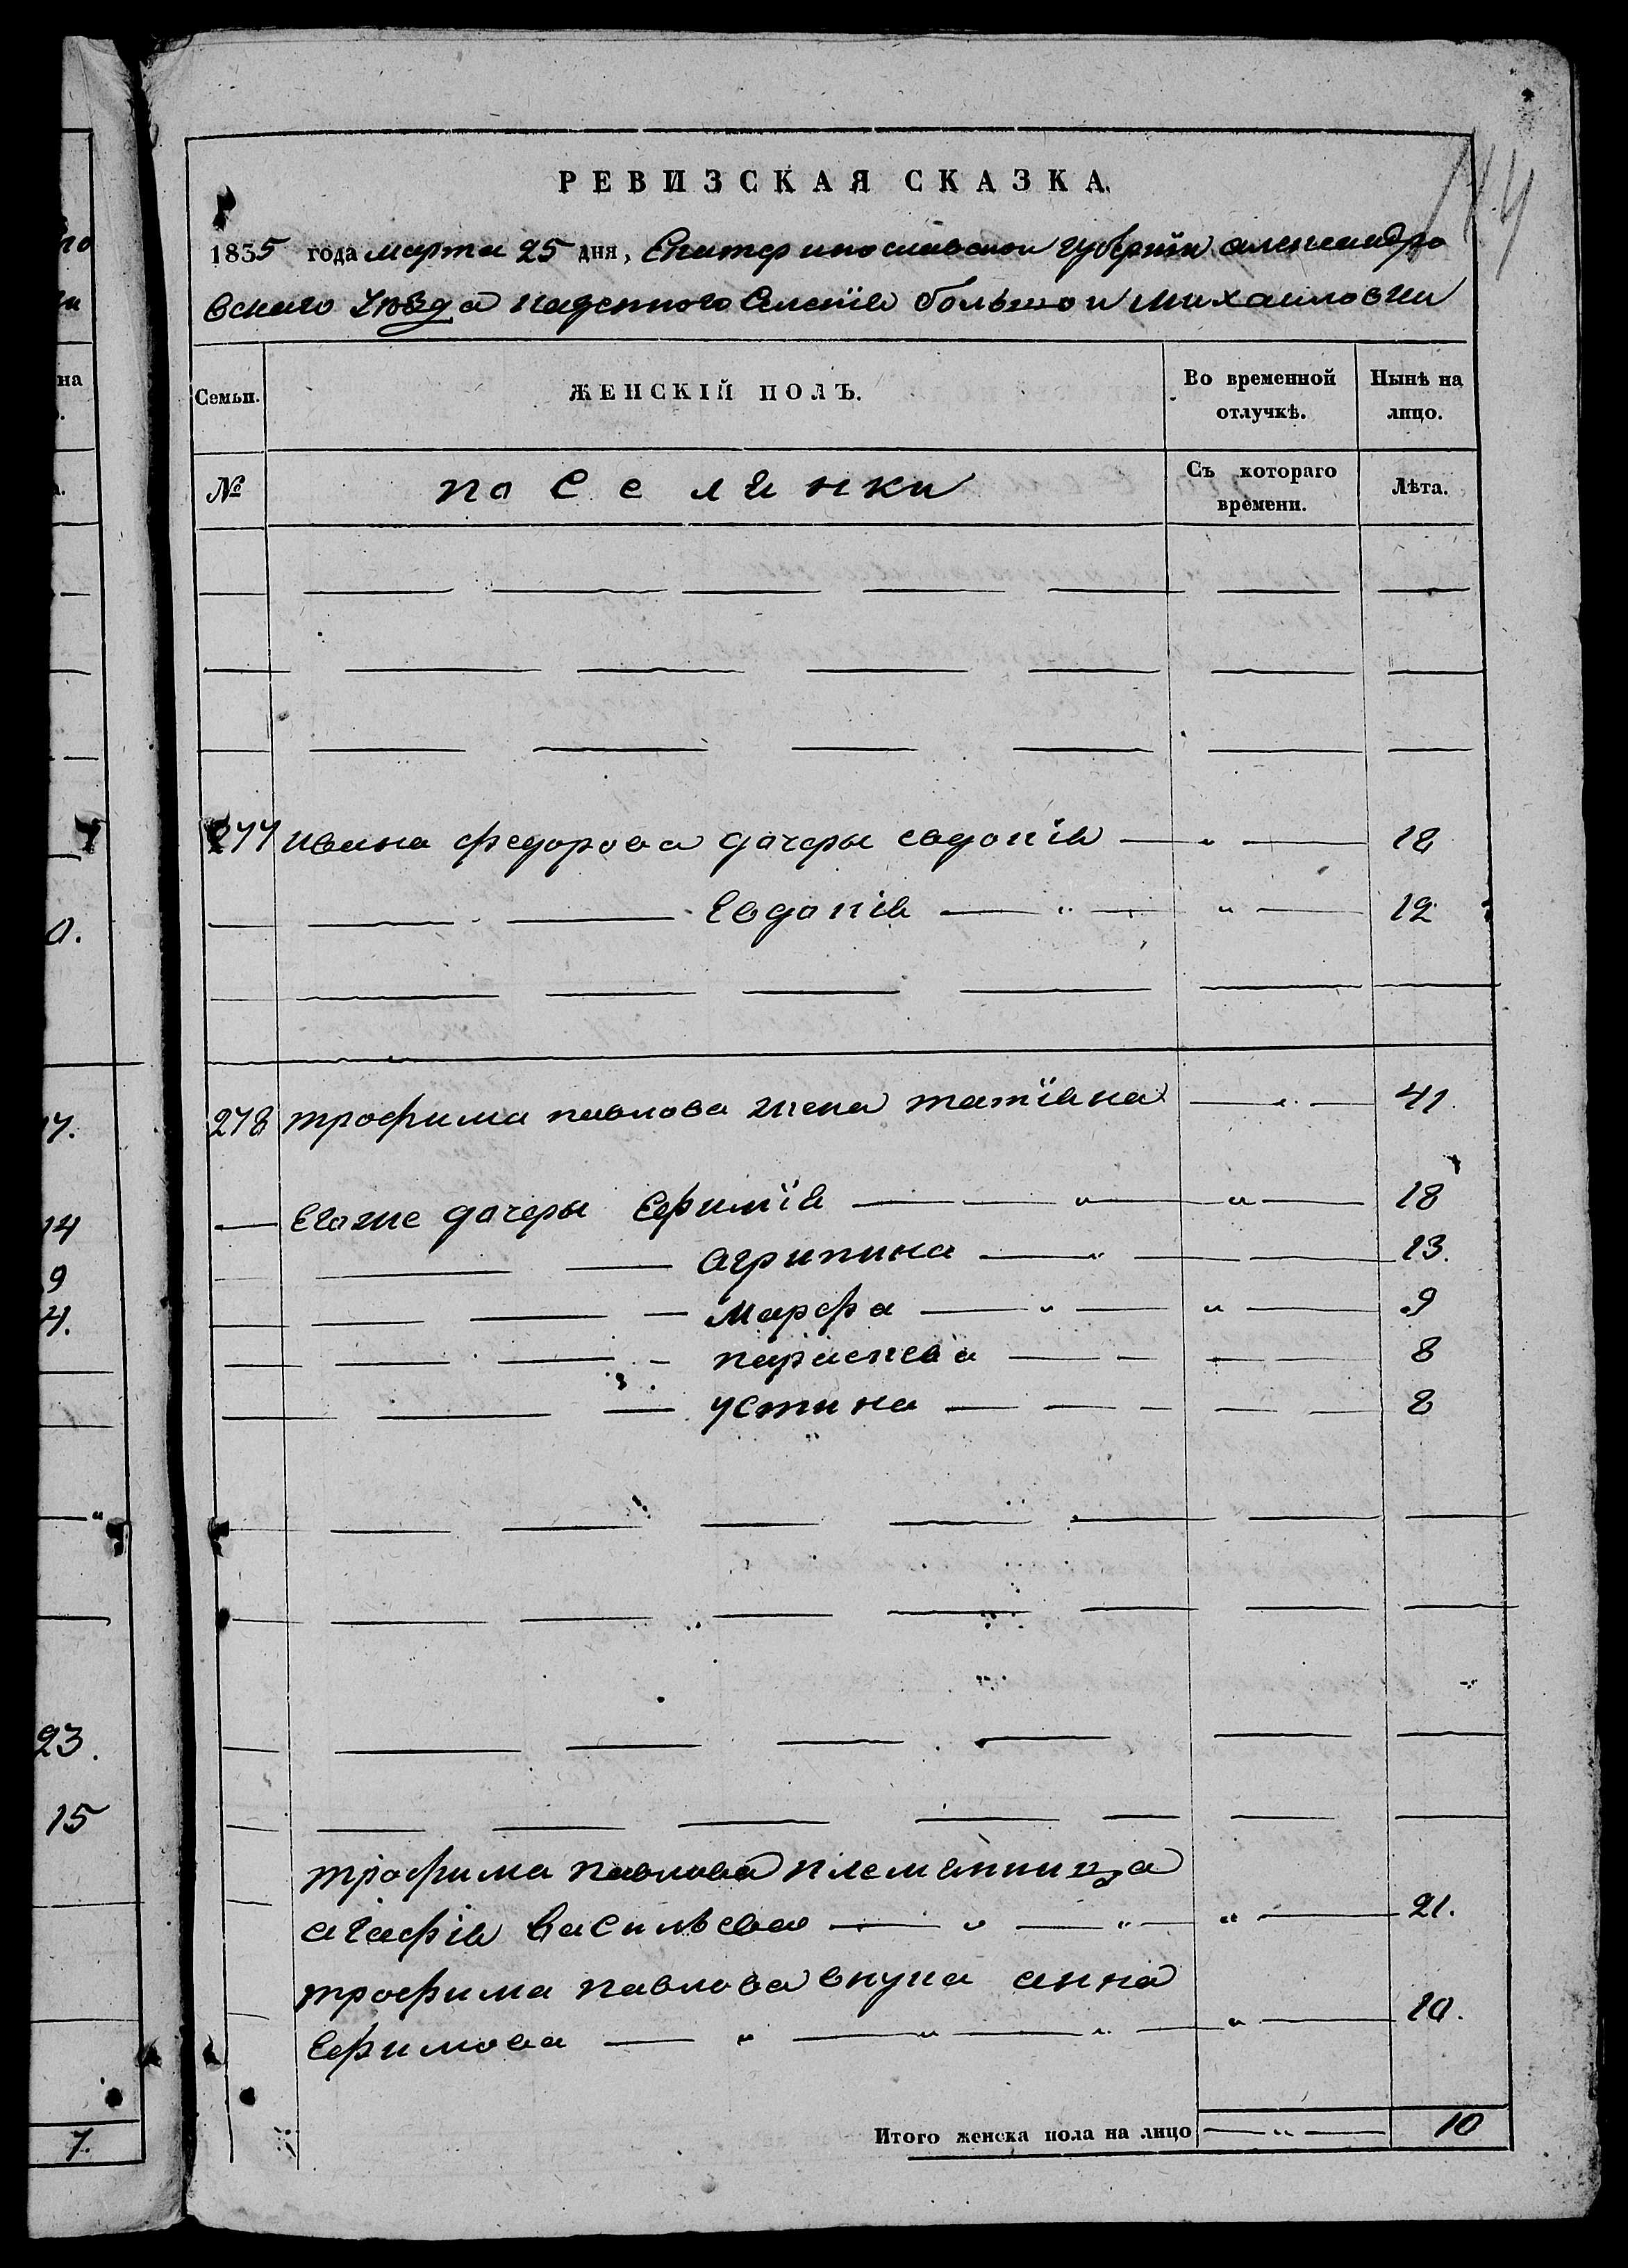 по
на
РЕВИЗСКАЯ СКАЗКА.
1835 года марта 25 дня, Екатеринославской губернїи александро
вскаго уѣзда казенного Селенїя большой михаиловки
Семьи.
ЖЕНСКІЙ ПОЛЪ.
Во временной отлучкѣ.
Нынѣ на лицо.
№
поселянки
Съ котораго времени.
Лѣта.
277 ивана федорова дочеры евдокїя — „ — 18
Евдокїя — „ — „ — 12
278 трофима павлова жена татїяна — „ — 41
Егоже дочеры Ефимїя — „ — „ — 18
агрипина — „ — 13.
марфа — „ — „ — 9
параскева — 8
устина — 8
трофима павлова племянница
агафїя васильева — „ — „ — „ — 21.
трофима павлова внука анна
Ефимова — „ — „ — „ — „ — 10.
Итого женска пола на лицо — „ — 10
0.
7.
14
9
4.
23.
15
7.